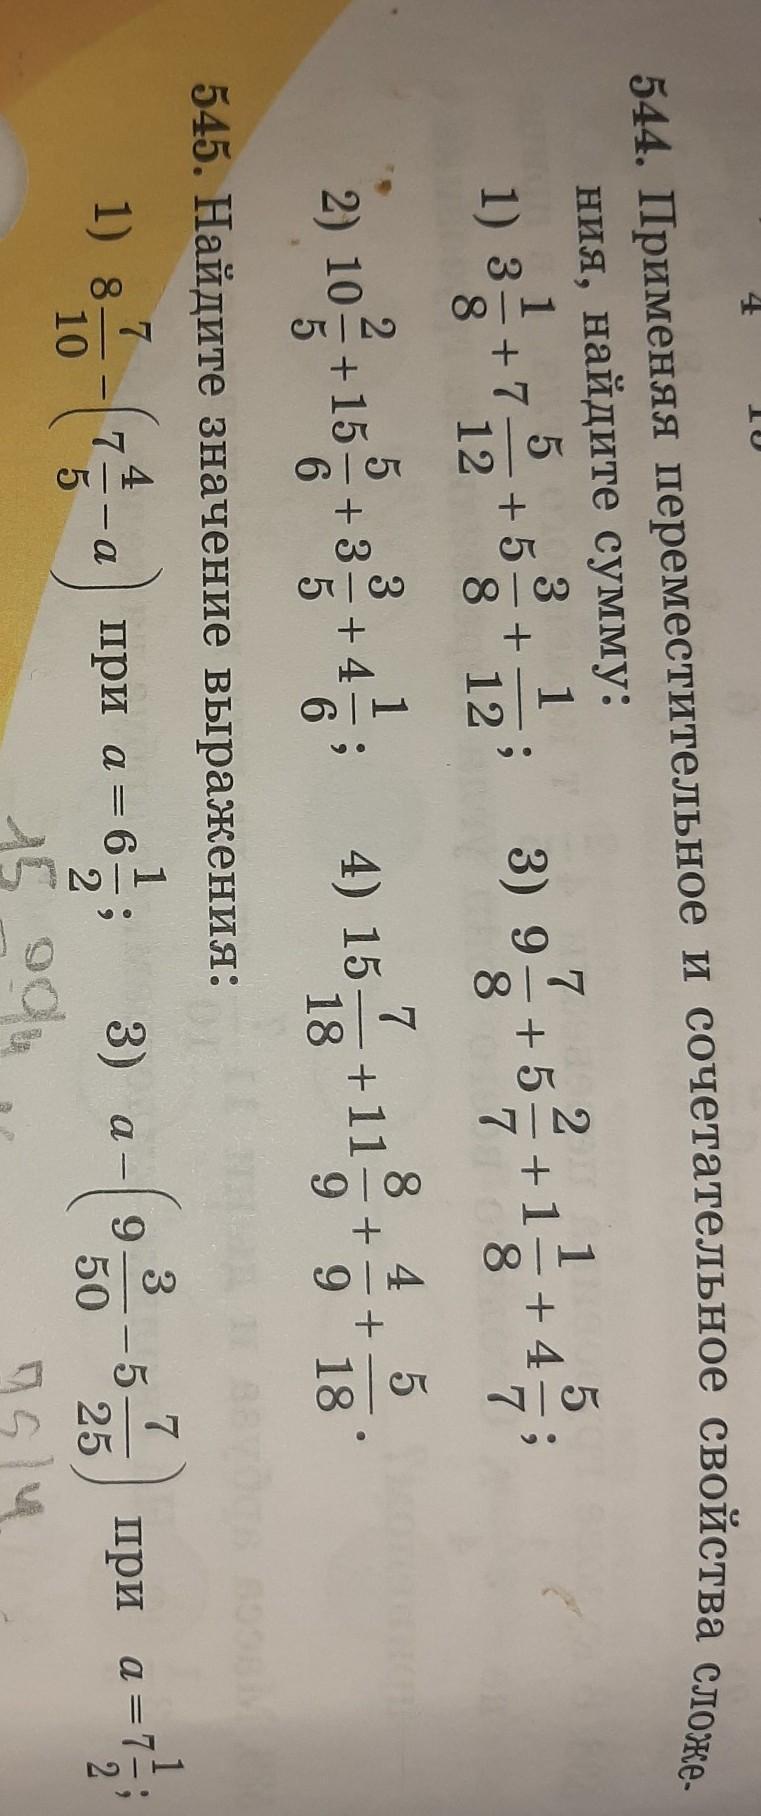 544. Применяя переместительное и сочетательное свойства сложе-
ния, найдите сумму:
1) 3 1/8 + 7 5/12 + 5 3/8 + 1/12; 3) 9 7/8 + 5 2/7 + 1 1/8 + 4 5/7;
2) 10 2/5 + 15 5/6 + 3 3/5 + 4 1/6; 4) 15 7/18 + 11 8/9 + 4/9 + 5/18.
545. Найдите значение выражения:
1) 8 7/10 − (7 4/5 − a) при a = 6 1/2; 3) a − (9 3/50 − 5 7/25) при a = 7 1/2;